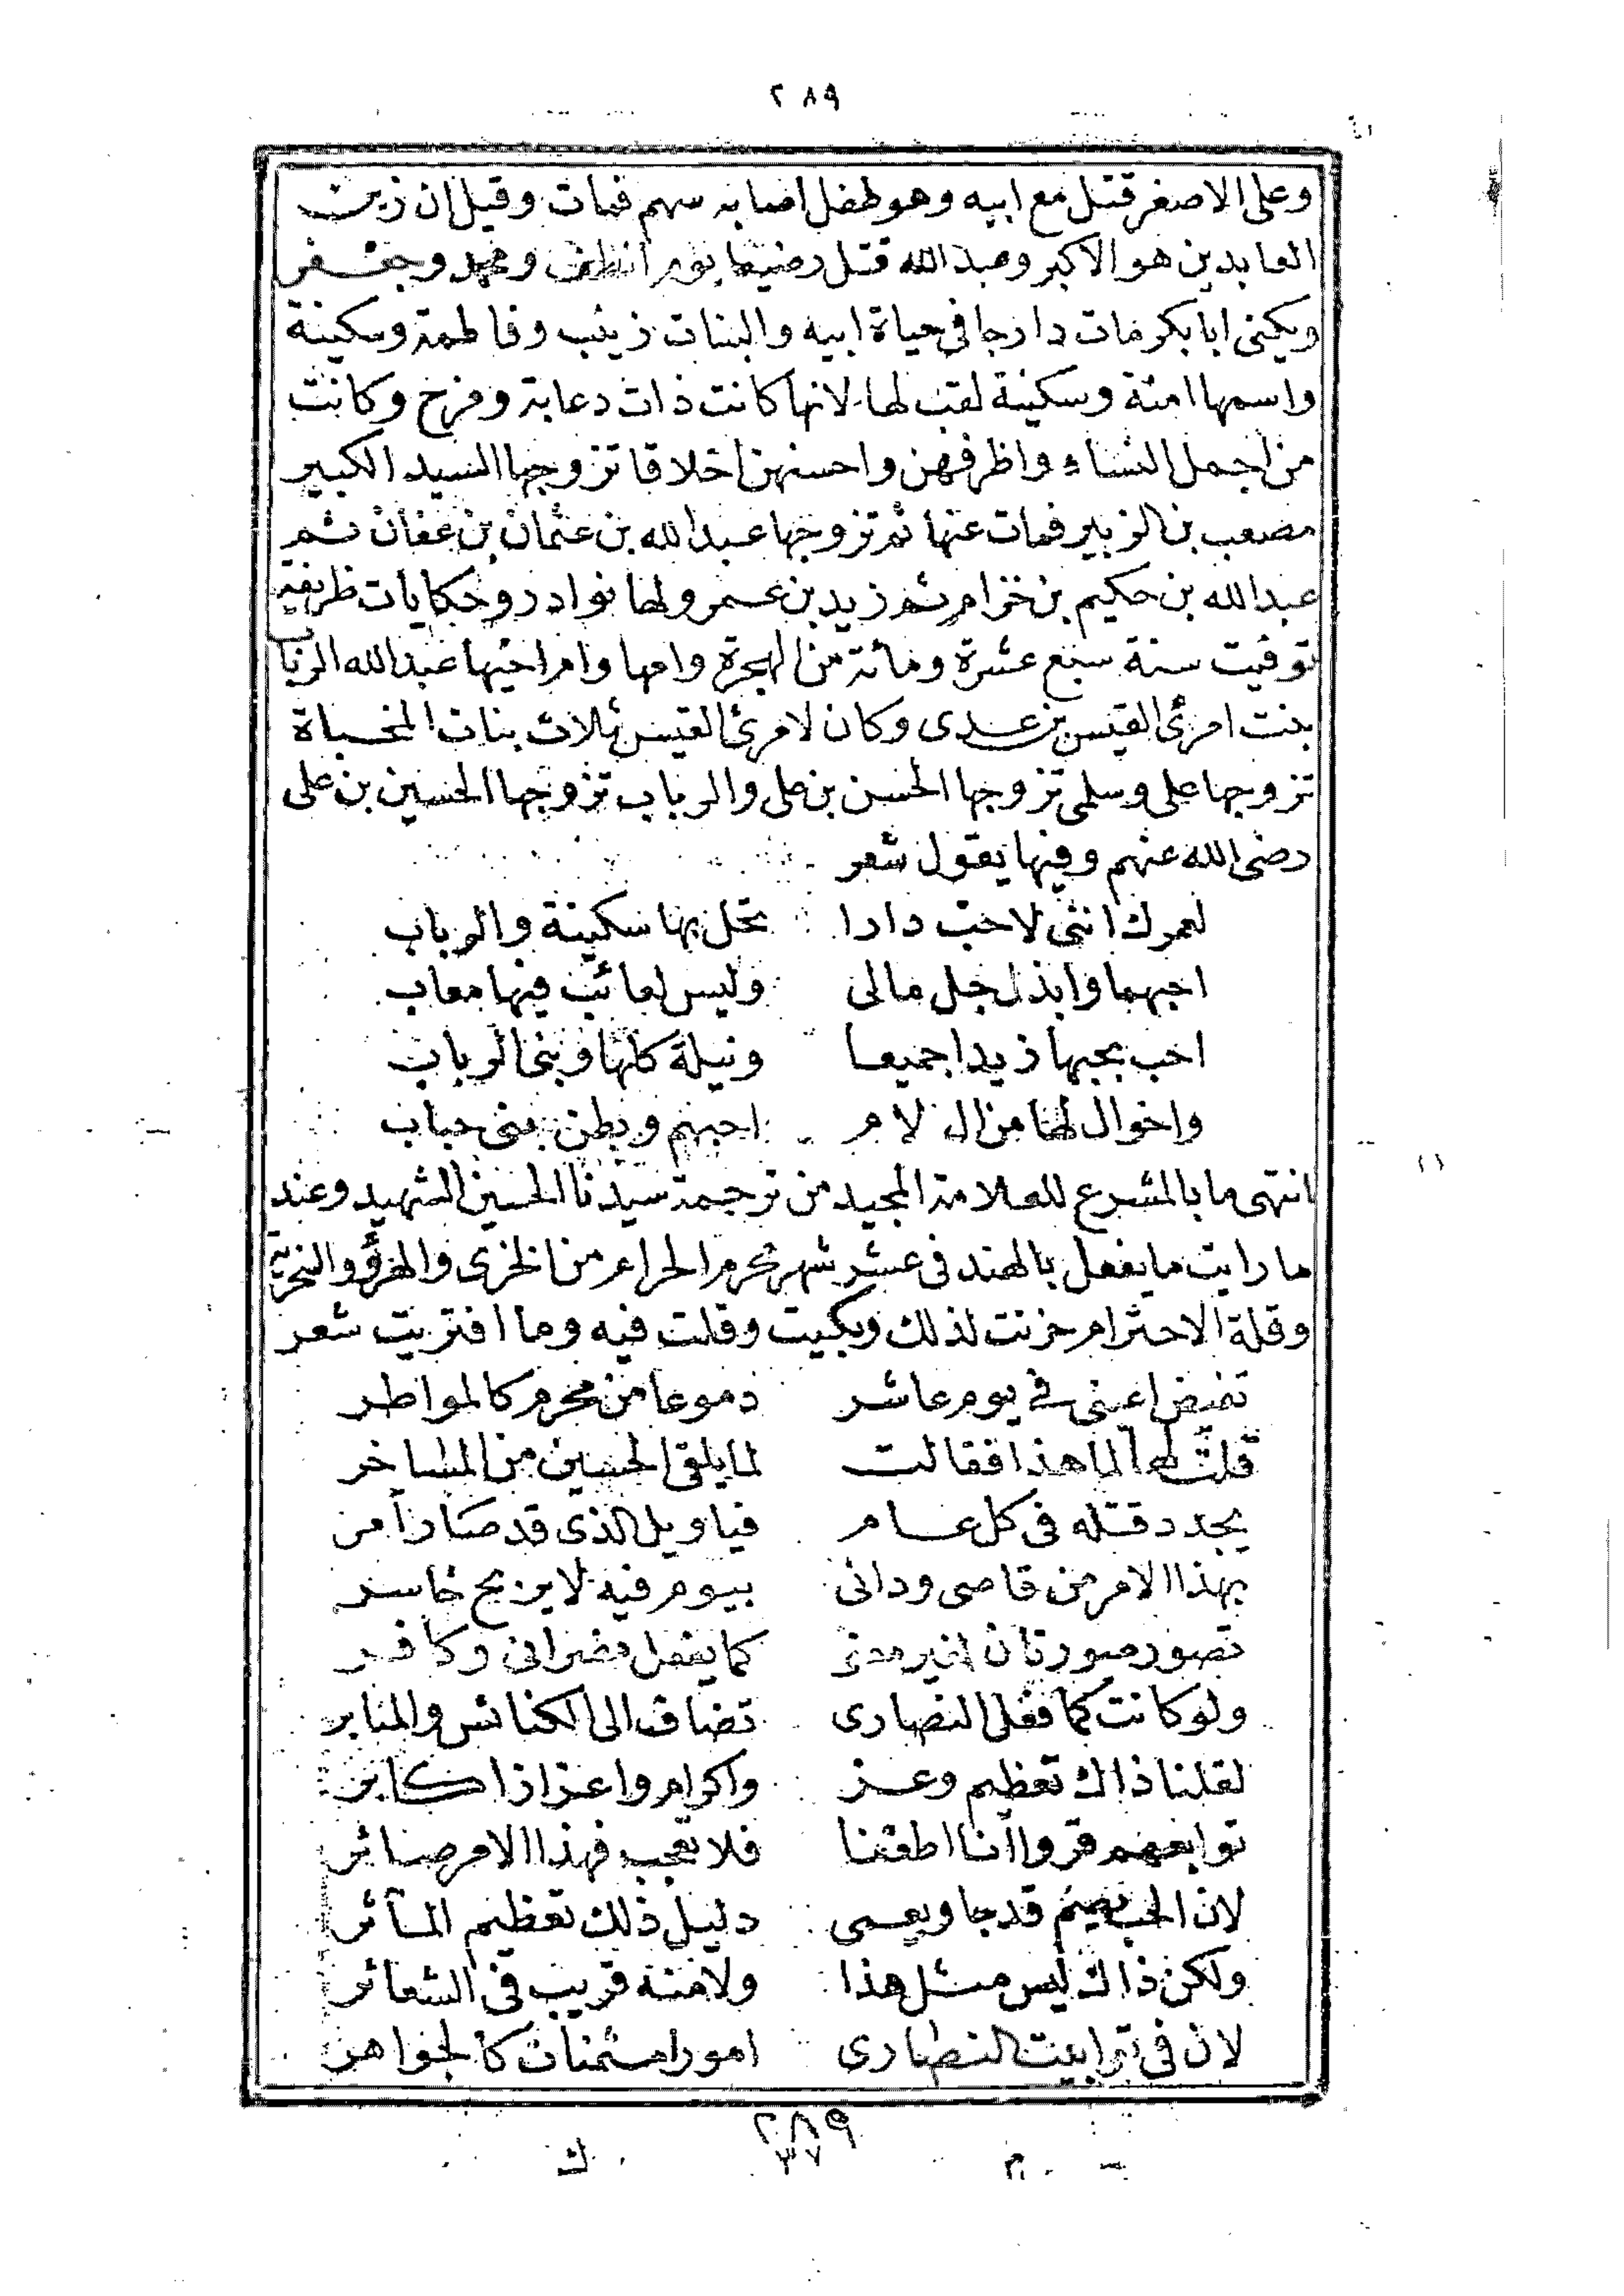 ٢٨٩
وعلى الاصغر قتل مع ابيه وهو طفل اصابه سهم فمات وقيل ان زين
العابدين هو الاكبر وعبد الله قتل رضيعا يوم الطف ومحمد وجعفر
ويكنى ابا بكر مات دارجا في حياة ابيه والبنات زينب وفاطمة وسكينة
واسمها امنة وسكينة لقب لها لانها كانت ذات دعابة ومزح وكانت
من اجمل النساء واظرفهن واحسنهن اخلاقا تزوجها السيد الكبير
مصعب بن الزبير فمات عنها ثم تزوجها عبد الله بن عثمان بن عفان ثم
عبد الله بن حكيم بن حزام ثم زيد بن عمر ولها نوادر وحكايات ظريفة
توفيت سنة سبع عشرة ومائة من الهجرة وامها وام اخيها عبد الله الرباب
بنت امرئ القيس بن عدى وكان لامرئ القيس ثلاث بنات المخباة
تزوجها على وسلمى تزوجها الحسن بن على والرباب تزوجها الحسين بن على
رضى الله عنهم وفيها يقول شعر
لعمرك انني لاحب دارا تحل بها سكينة والرباب
احبهما وابذل جل مالى وليس لعائب فيها معاب
احب بحبها زيدا جميعا ونيلة كلها وبنى الرباب
واخوال لها من ال لام احبهم وبطن بنى حباب
انتهى ما بالمشرع للعلامة المجيد من ترجمة سيدنا الحسين الشهيد وعند
ما رايت ما يفعل بالهند في عشر شهر محرم الحرام من الخزى والهزؤ والسخرية
وقلة الاحترام حزنت لذلك وبكيت وقلت فيه وما افتريت شعر
تفيض اعيني في يوم عاشر دموعا من محرم كالمواطر
قلت لها لما هذا فقالت لما يلقى الحسين من المساخر
يجدد قتله في كل عام فيا ويل الذى قد صار آمر
بهذا الامر من قاصى ودانى بيوم فيه لا يربح خاسر
تصور صورتان لغير كما يفعل نصرانى وكافر
ولو كانت كما فعل النصارى تضاف الى الكنائس والمنابر
لقلنا ذاك تعظيم وعز واكرام واعزازا كابر
توابعهم قروا انا اطقنا فلا تعجب فهذا الامر صائر
لان الحب يصم قد جا ويعمى دليل ذلك تعظيم المآثر
ولكن ذاك ليس مثل هذا ولا منه قريب في الشعائر
لان في ترابيت النصارى امورا مثمنات كالجواهر
٢٨٩
٣٧
م ك